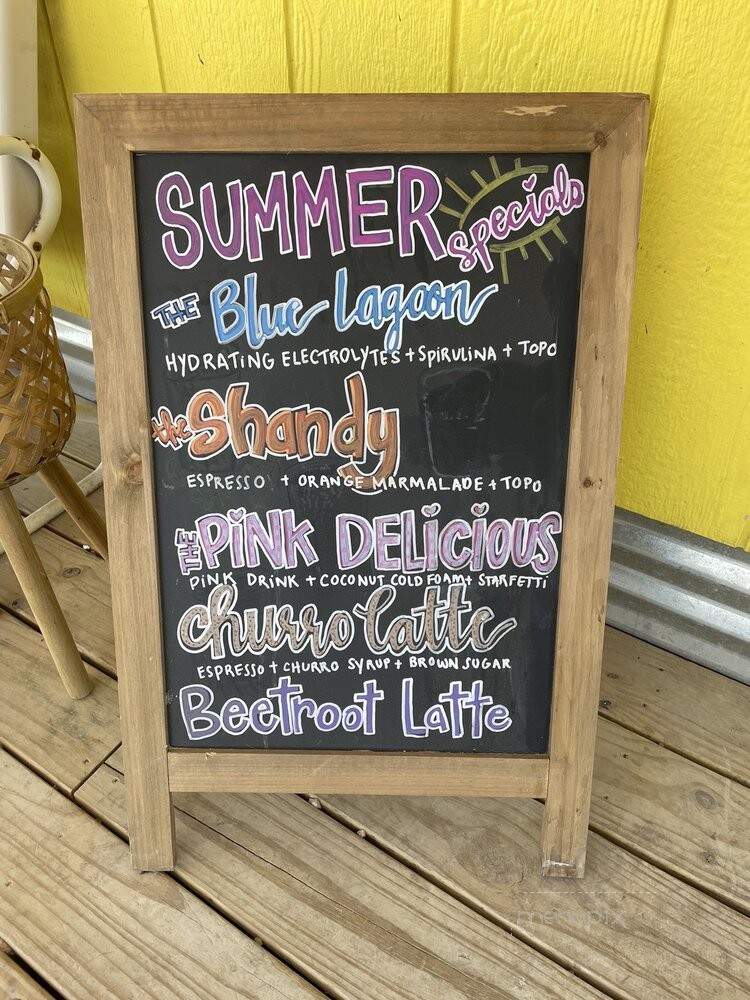 SUMMER Specials
THE Blue Lagoon
HYDRATING ELECTROLYTES + SPIRULINA + TOPO
the Shandy
ESPRESSO + ORANGE MARMALADE + TOPO
THE PINK DELICIOUS
PINK DRINK + COCONUT COLD FOAM + STARFETTI
churro latte
ESPRESSO + CHURRO SYRUP + BROWN SUGAR
Beetroot Latte
menupix